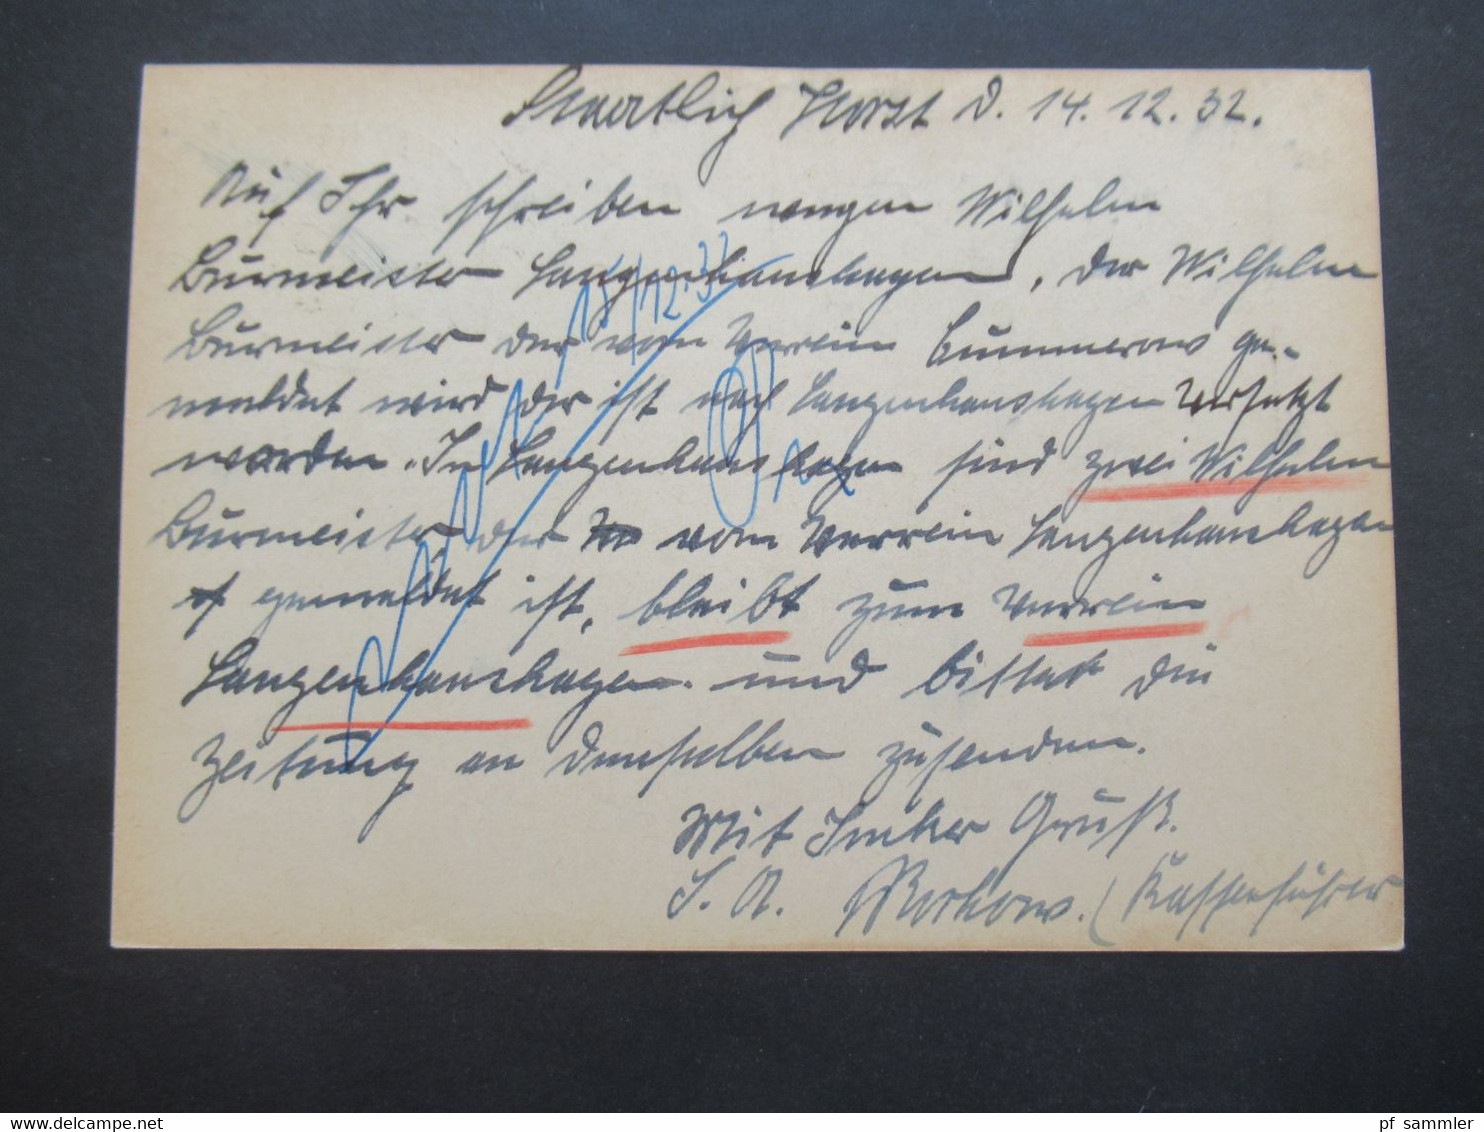 Staatlich Horst d. 14. 12. 32.
Auf Ihr schreiben wengen Wilhelm
Burmeister Langenhanshagen, der Wilhelm
Burmeister der vom Verein Cummerows ge-
meldet wird der ist nach Langenhanshagen Versetzt
worden. In Langenhanshagen sind zwei Wilhelm
Burmeister der vom Verein Langenhanshagen
gemeldet ist, bleibt zum Verein
Langenhanshagen. und bittet die
Zeitung an denselben zusenden.
Mit Imker Gruß.
I. A. Markows. (Kassenführer
15/12.32
pf sammler